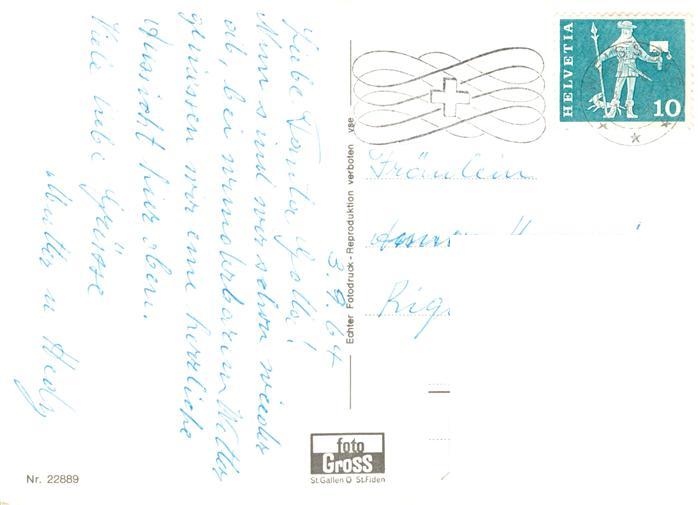 3.9.64
Liebe Tante Bolla!
Nun sind wir schon wieder
ob, bei wunderbarem Wetter
geniessen wir eine herrliche
Aussicht hier oben.
Viele liebe Grüsse
Mutter u Hedy
Echter Fotodruck - Reproduktion verboten vse
HELVETIA
10
Fräulein
Rig
foto
Gross
St.Gallen O St.Fiden
Nr. 22889